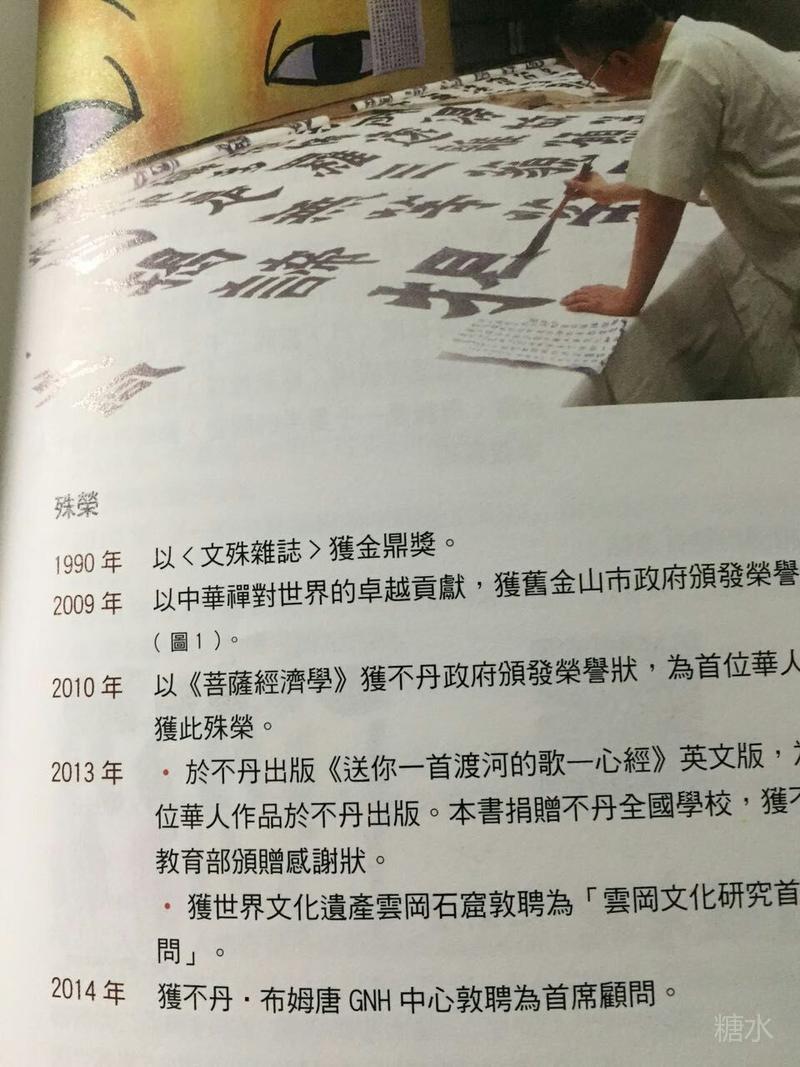 殊榮
1990 年 以〈文殊雜誌〉獲金鼎獎。
2009 年 以中華禪對世界的卓越貢獻，獲舊金山市政府頒發榮譽
（圖1）。
2010 年 以《菩薩經濟學》獲不丹政府頒發榮譽狀，為首位華人
獲此殊榮。
2013 年 ・於不丹出版《送你一首渡河的歌—心經》英文版，為
位華人作品於不丹出版。本書捐贈不丹全國學校，獲不
教育部頒贈感謝狀。
・獲世界文化遺產雲岡石窟敦聘為「雲岡文化研究首
問」。
2014 年 獲不丹・布姆唐 GNH 中心敦聘為首席顧問。
糖水